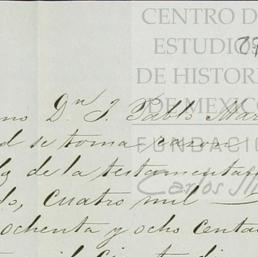 CENTRO D
ESTUDIO
DE HISTOR
DE MEXICO
FUNDACIÓ
Carlos Sl
no Dⁿ J. Pablo Mar
d se toma razon
de la testamenta
do, cuatro mil
ochenta y ocho centa